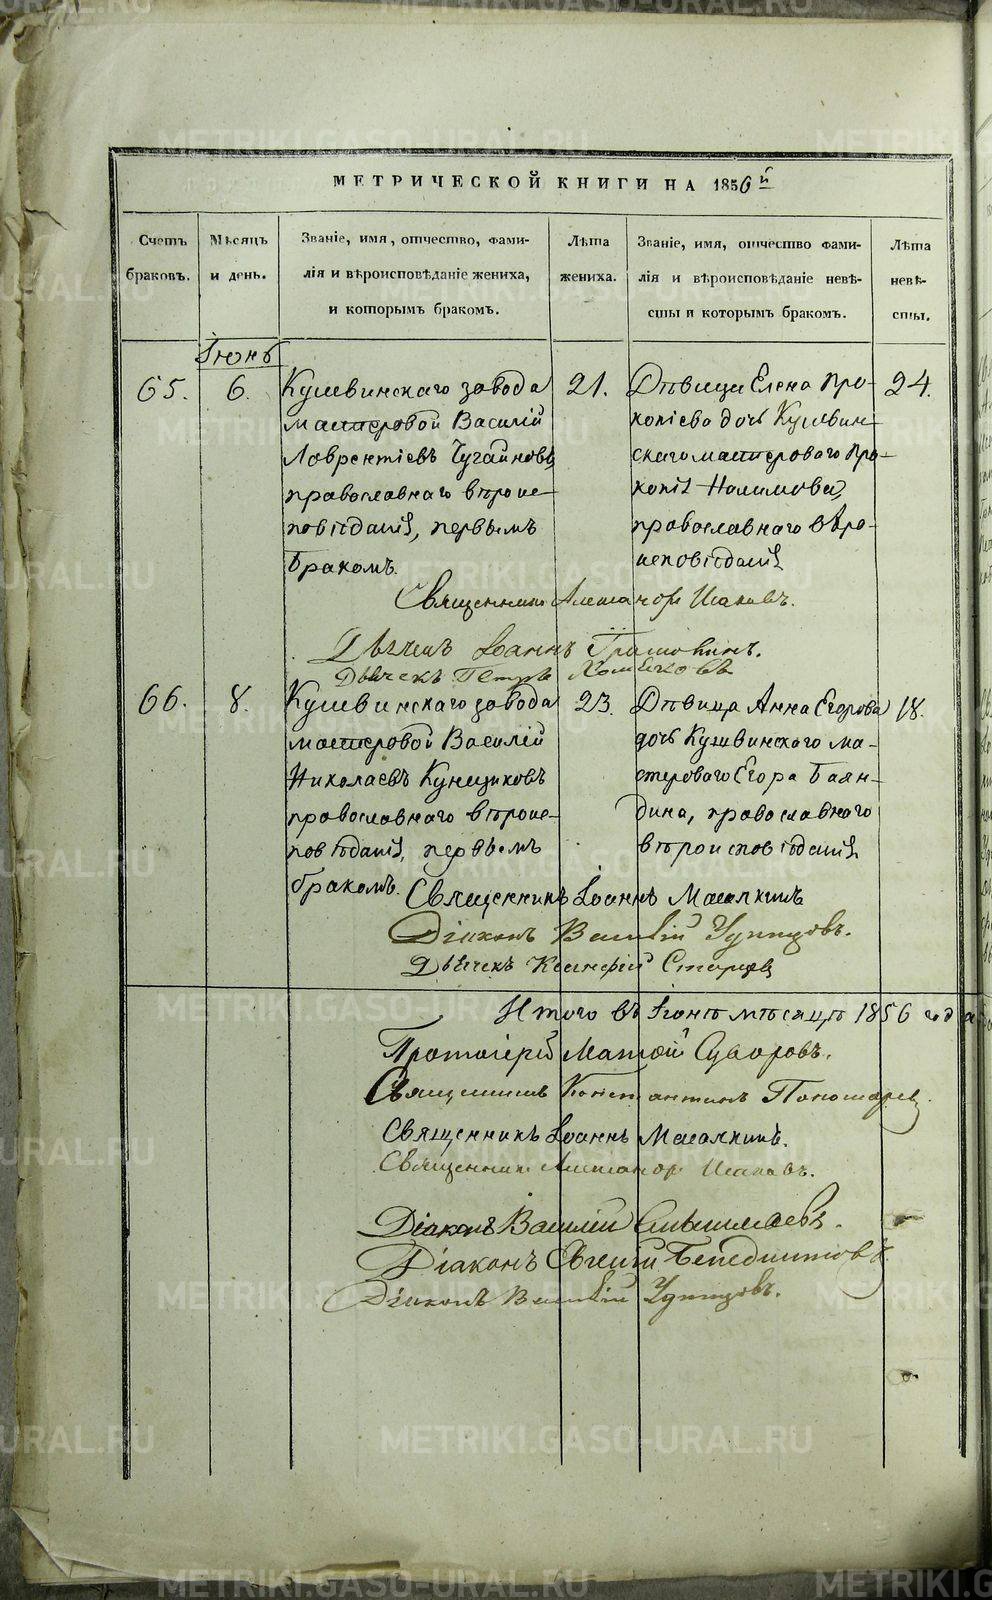 МЕТРИЧЕСКОЙ КНИГИ НА 1856й
Счетъ браковъ.
Мѣсяцъ и день.
Званіе, имя, отчество, фами-
лія и вѣроисповѣданіе жениха,
и которымъ бракомъ.
Лѣта жениха.
Званіе, имя, отчество фами-
лія и вѣроисповѣданіе невѣ-
сты и которымъ бракомъ.
Лѣта невѣ-
сты.
Іюнь
65.
6.
Кушвинскаго завода
мастеровой Василій
Лаврентіевъ Чугайновъ
православнаго вѣроис-
повѣданія, первымъ
бракомъ.
21.
Дѣвица Елена Про-
копіева дочь Кушвин-
скаго мастероваго Про-
копія Налимова,
православнаго вѣро-
исповѣданія
24.
Священникъ Александръ Исаковъ.
Дьячекъ Іоаннъ
Дьячекъ Петръ Хомяковъ
66.
8.
Кушвинскаго завода
мастеровой Василій
Николаевъ Кунщиковъ
православнаго вѣроис-
повѣданія, первымъ
бракомъ.
23.
Дѣвица Анна Егорова
дочь Кушвинскаго ма-
стероваго Егора Баян-
дина, православнаго
вѣроисповѣданія
18.
Священникъ Іоаннъ Масалкинъ
Діаконъ Василій Удинцовъ.
Дьячекъ Ксанфій Старцевъ
Итого въ Іюнѣ мѣсяцѣ 1856 года
Протоіерей Матѳій Суворовъ.
Священникъ Константинъ Пономаревъ.
Священникъ Іоаннъ Масалкинъ.
Священникъ Александръ Исаковъ.
Діаконъ Василій
Діаконъ Евгеній Бенедиктовъ.
Діаконъ Василій Удинцовъ.
METRIKI.GASO-URAL.RU